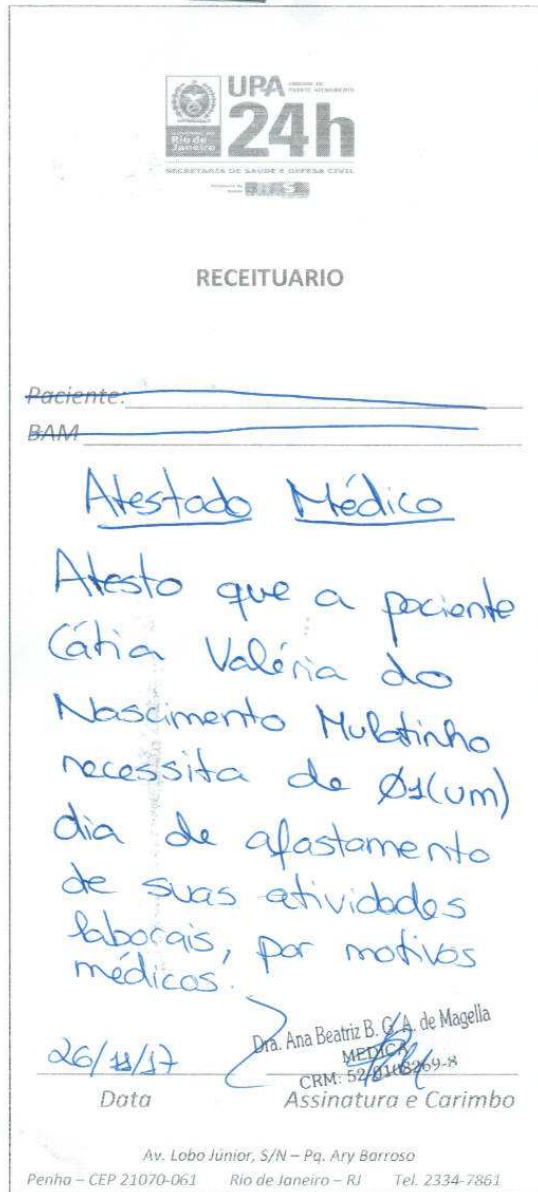 UPA UNIDADE DE PRONTO ATENDIMENTO
24h
Rio de Janeiro
SECRETARIA DE SAÚDE E DEFESA CIVIL
RECEITUARIO
Paciente:
BAM
Atestado Médico
Atesto que a paciente
Cátia Valéria do
Nascimento Mulatinho
necessita de 01(um)
dia de afastamento
de suas atividades
laborais, por motivos
médicos.
Dra. Ana Beatriz B. G. A. de Magella
MEDICA
CRM: 52-0108269-8
26/11/17
Data Assinatura e Carimbo
Av. Lobo Júnior, S/N – Pq. Ary Barroso
Penha – CEP 21070-061 Rio de Janeiro – RJ Tel. 2334-7861